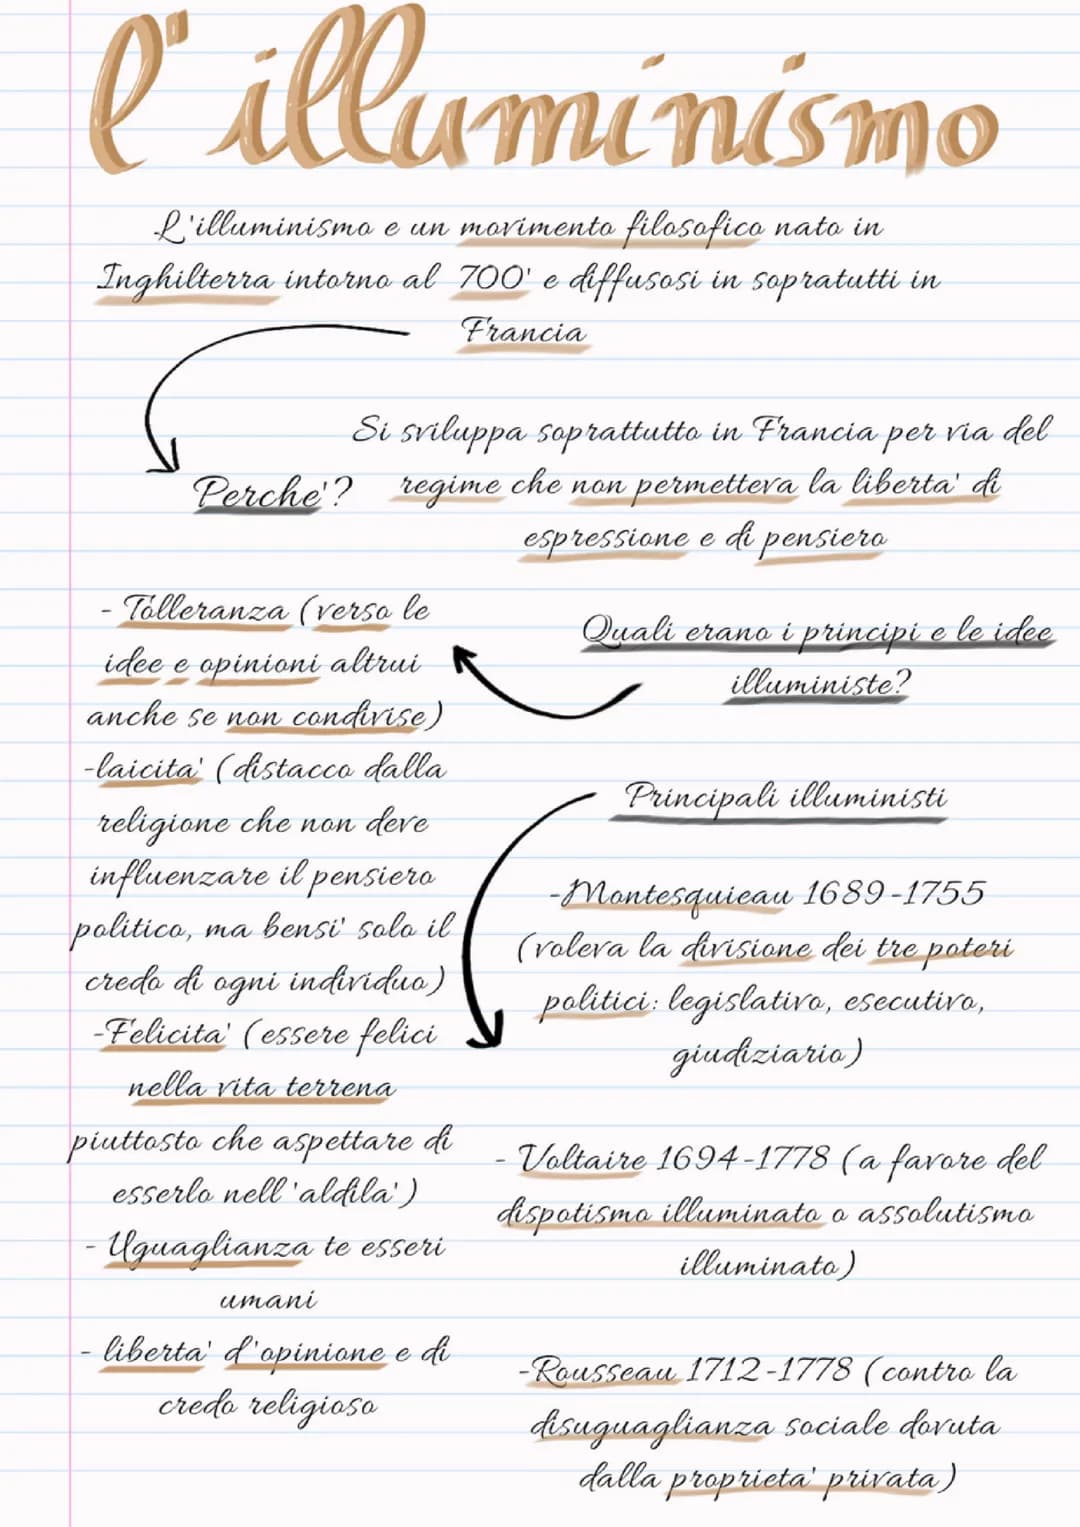 l'illuminismo
L'illuminismo e un movimento filosofico nato in
Inghilterra intorno al 700' e diffusosi in sopratutti in
Francia
Perche'?
Si sviluppa soprattutto in Francia per via del
regime che non permetteva la liberta' di
espressione e di pensiero
Quali erano i principi e le idee
illuministe?
- Tolleranza (verso le
idee e opinioni altrui
anche se non condivise)
-laicita' (distacco dalla
religione che non deve
influenzare il pensiero
politico, ma bensi' solo il
credo di ogni individuo)
-Felicita' (essere felici
nella vita terrena
piuttosto che aspettare di
esserlo nell'aldila')
- Uguaglianza te esseri
umani
- liberta' d'opinione e di
credo religioso
Principali illuministi
-Montesquieau 1689-1755
(voleva la divisione dei tre poteri
politici: legislativo, esecutivo,
giudiziario)
- Voltaire 1694-1778 (a favore del
dispotismo illuminato o assolutismo
illuminato)
-Rousseau 1712-1778 (contro la
disuguaglianza sociale dovuta
dalla proprieta' privata)